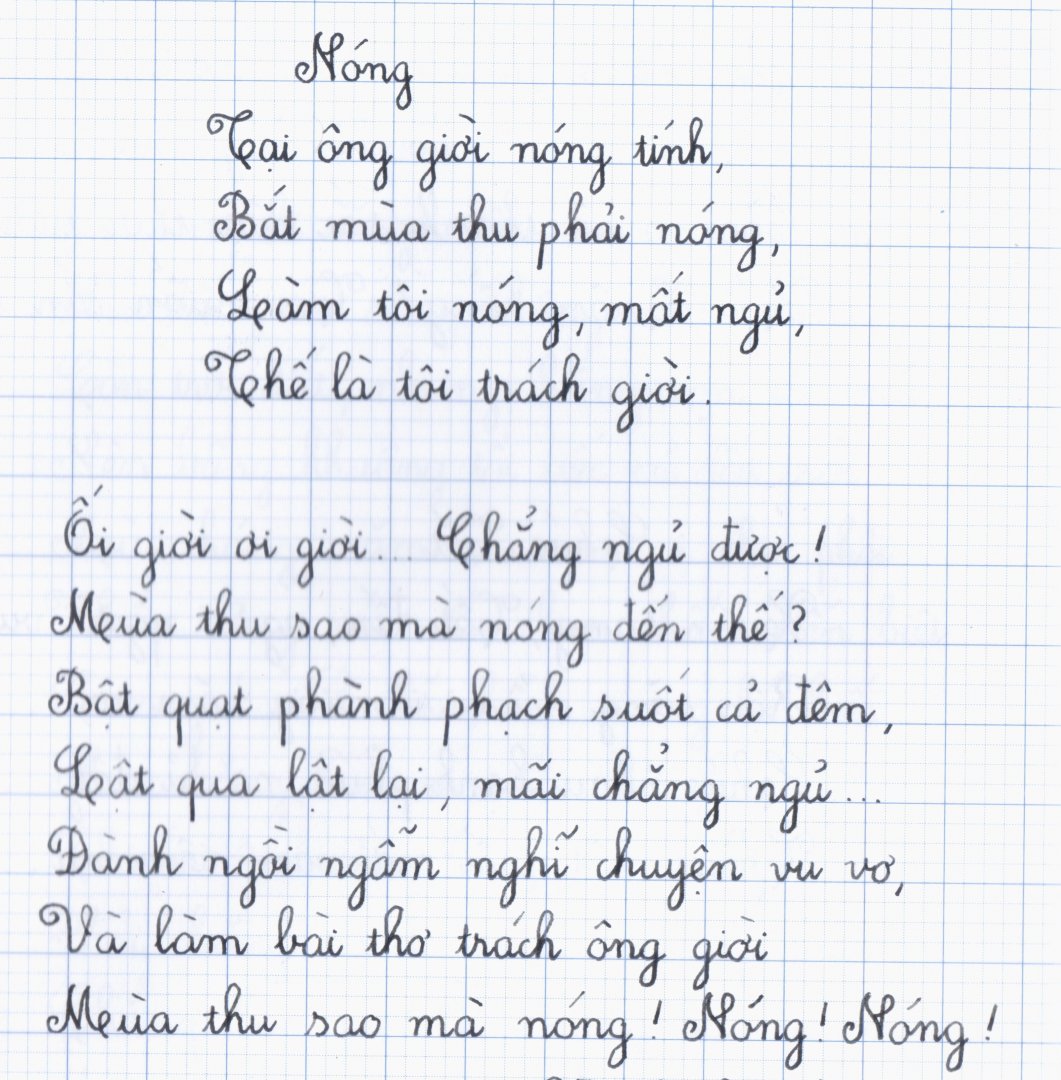 Nóng
Tại ông giời nóng tính,
Bắt mùa thu phải nóng,
Làm tôi nóng, mất ngủ,
Thế là tôi trách giời.
Ối giời ơi giời... Chẳng ngủ được!
Mùa thu sao mà nóng đến thế?
Bật quạt phành phạch suốt cả đêm,
Lật qua lật lại, mãi chẳng ngủ...
Đành ngồi ngẫm nghĩ chuyện vu vơ,
Và làm bài thơ trách ông giời
Mùa thu sao mà nóng! Nóng! Nóng!